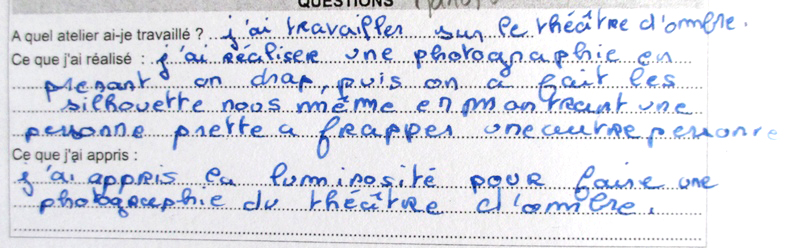 QUESTIONS
A quel atelier ai-je travaillé ? j'ai travailler sur le théâtre d'ombre.
Ce que j'ai réalisé : j'ai réaliser une photographie en
prenant un drap, puis on a fait les
silhouette nous même en montrant une
personne prette a frapper une autre personne
Ce que j'ai appris :
j'ai appris la luminosité pour faire une
photographie du théâtre d'ombre.